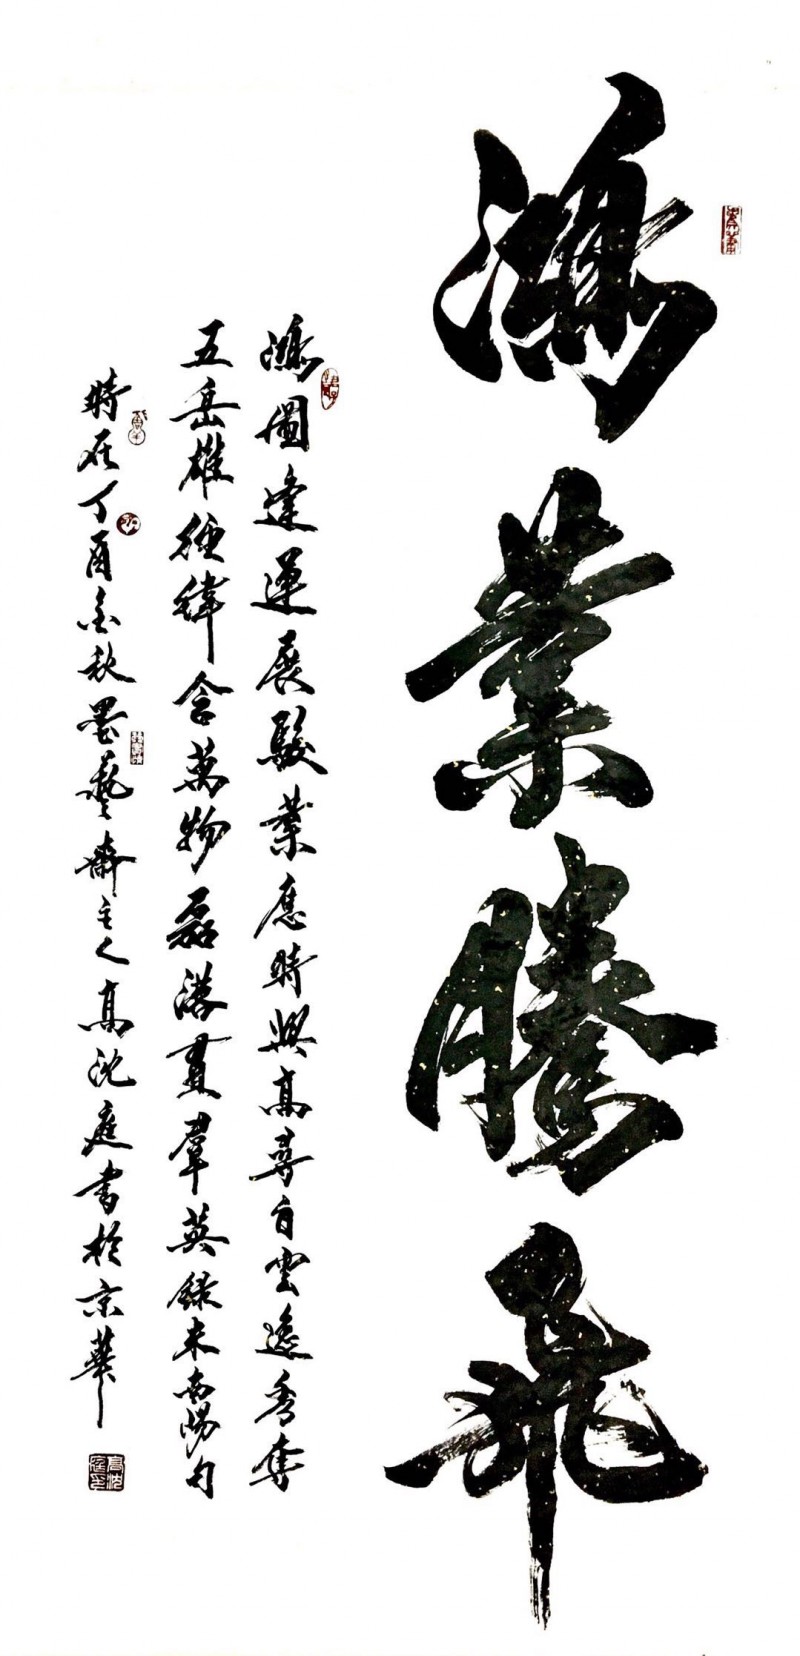 鴻業騰飛
鴻圖達運展駿業應時興高尋白雲逸秀奪
五岳雄經緯含萬物磊落貫羣英錄米南陽句
時在丁酉金秋墨藝齋主人高沈庭書於京華